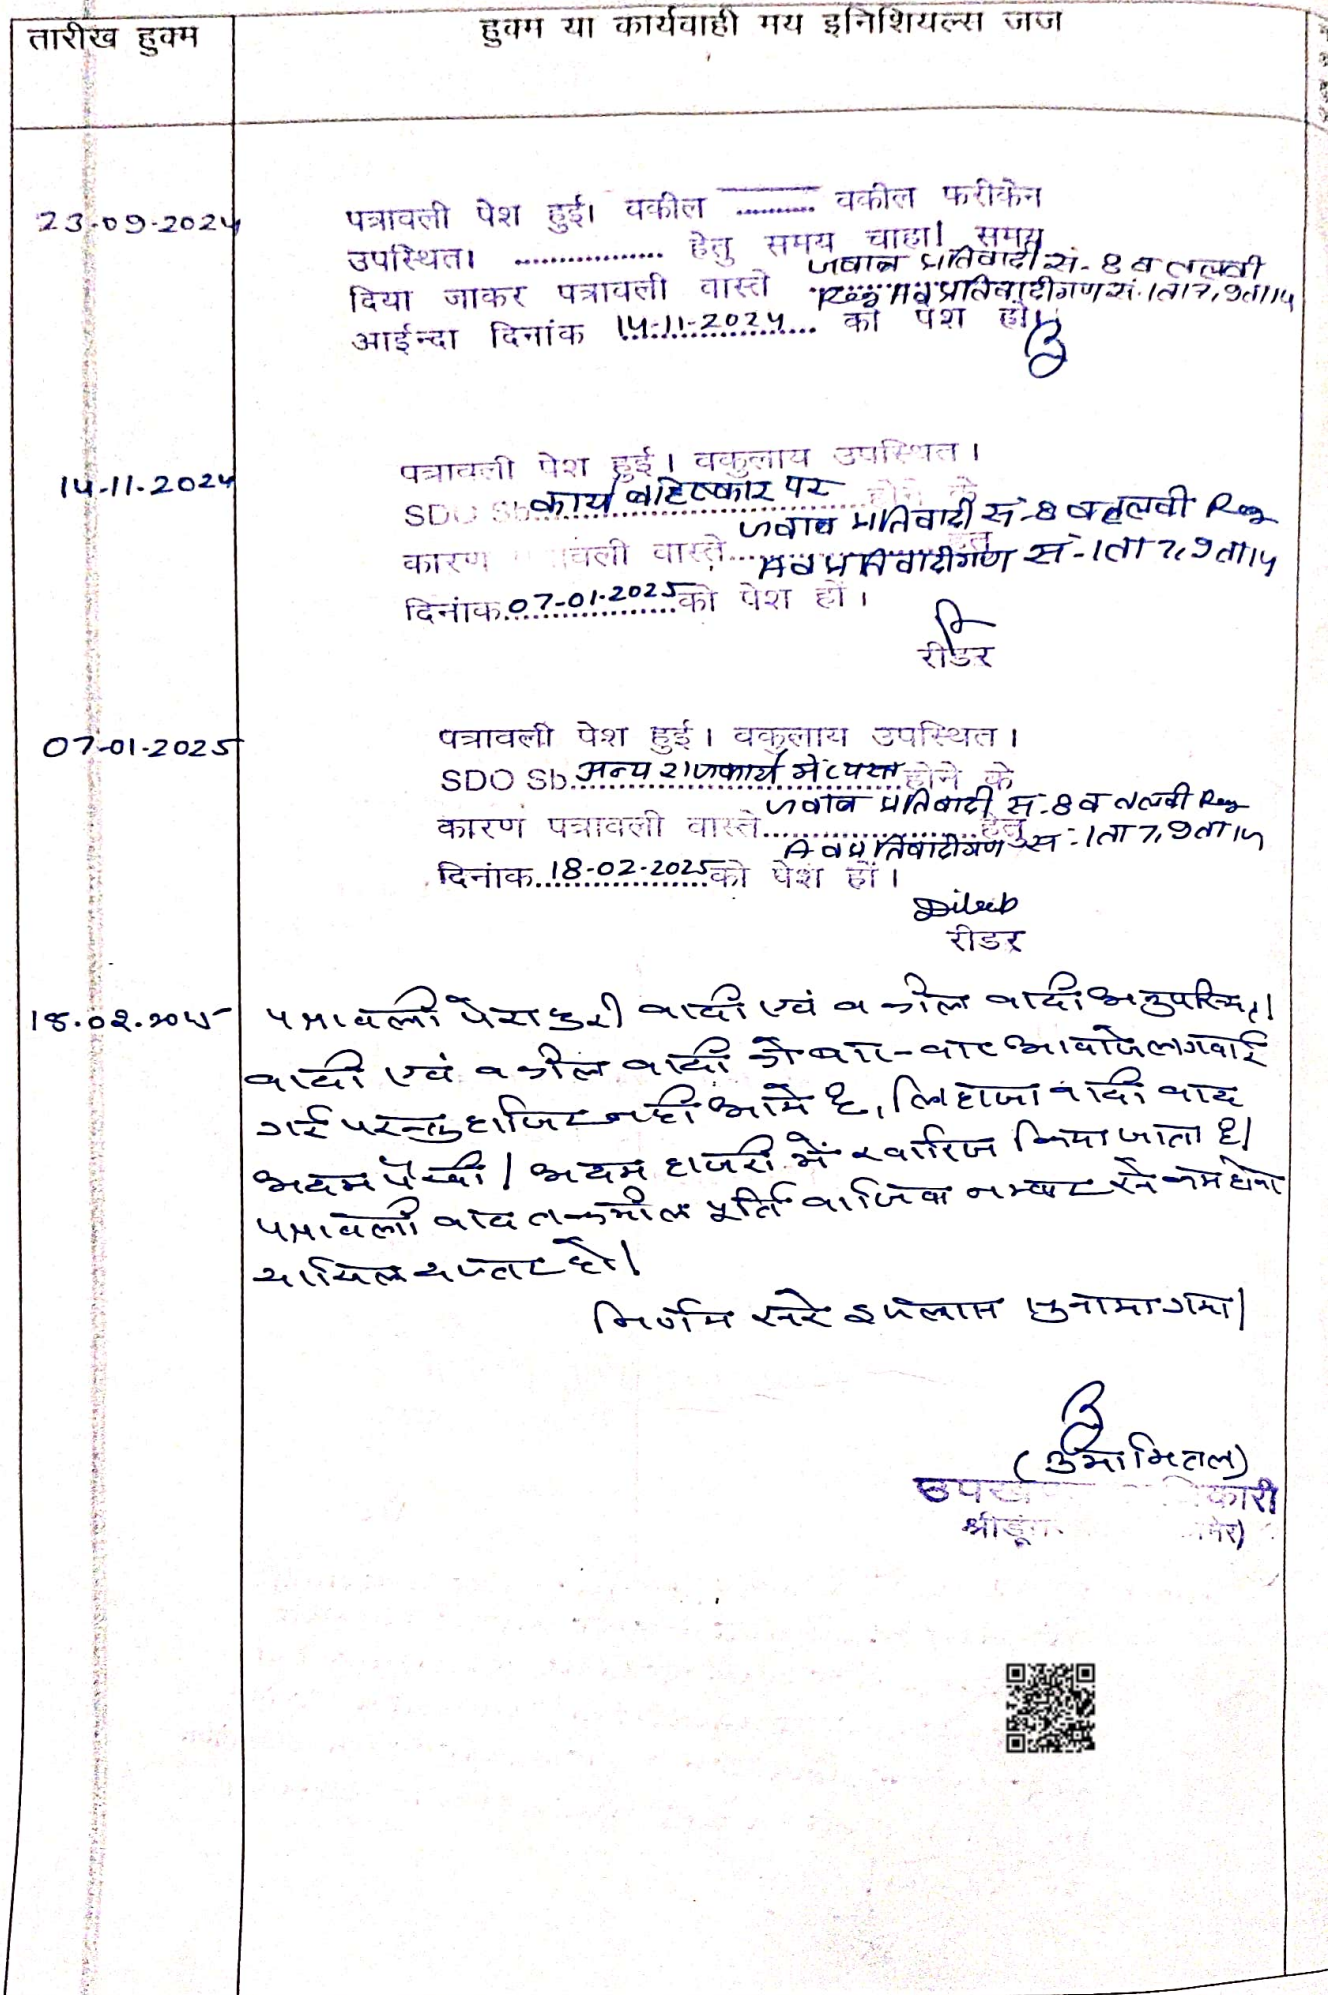 तारीख हुक्म
हुक्म या कार्यवाही मय इनिशियल्स जज
23-09-2024
पत्रावली पेश हुई। वकील .......... वकील फरीकेन
उपस्थित। .................. हेतु समय चाहा। समय
जवाब प्रतिवादी सं.-8 व तलवी
दिया जाकर पत्रावली वास्ते Reg A व प्रतिवादीगण सं.-1 ता 7, 9 ता 14
आईन्दा दिनांक 14-11-2024 को पेश हो।
14-11-2024
पत्रावली पेश हुई। वकुलाय उपस्थित।
SDO Sb. कार्य बहिष्कार पर होने के
जवाब प्रतिवादी सं-8 व तलवी Reg
कारण वली वास्ते.......हेतु
A व प्रतिवादीगण सं-1 ता 7, 9 ता 14
दिनांक 07-01-2025 को पेश हों।
रीडर
07-01-2025
पत्रावली पेश हुई। वकुलाय उपस्थित।
SDO Sb. अन्य राजकार्य में व्यस्त होने के
जवाब प्रतिवादी सं-8 व तलवी Reg
कारण पत्रावली वास्ते..................हेतु
A व प्रतिवादीगण सं-1 ता 7, 9 ता 14
दिनांक 18-02-2025 को पेश हों।
Dileep
रीडर
18.02.2025
पत्रावली पेश हुई। वादी एवं वकील वादी अनुपस्थित।
वादी एवं वकील वादी को बार-बार आवाजे लगवाई
गई परन्तु हाजिर नहीं आये है, लिहाजा वादी वाद
अदम पैरवी / अदम हाजरी में खारिज किया जाता है।
पत्रावली बाद तकमील पूर्ति वाजिब नम्बर से कम होकर
दाखिल दफ्तर हो।
निर्णय सरे इजलास सुनाया गया।
(उमा मित्तल)
उपखं कारी
श्रीडूंग नेर)